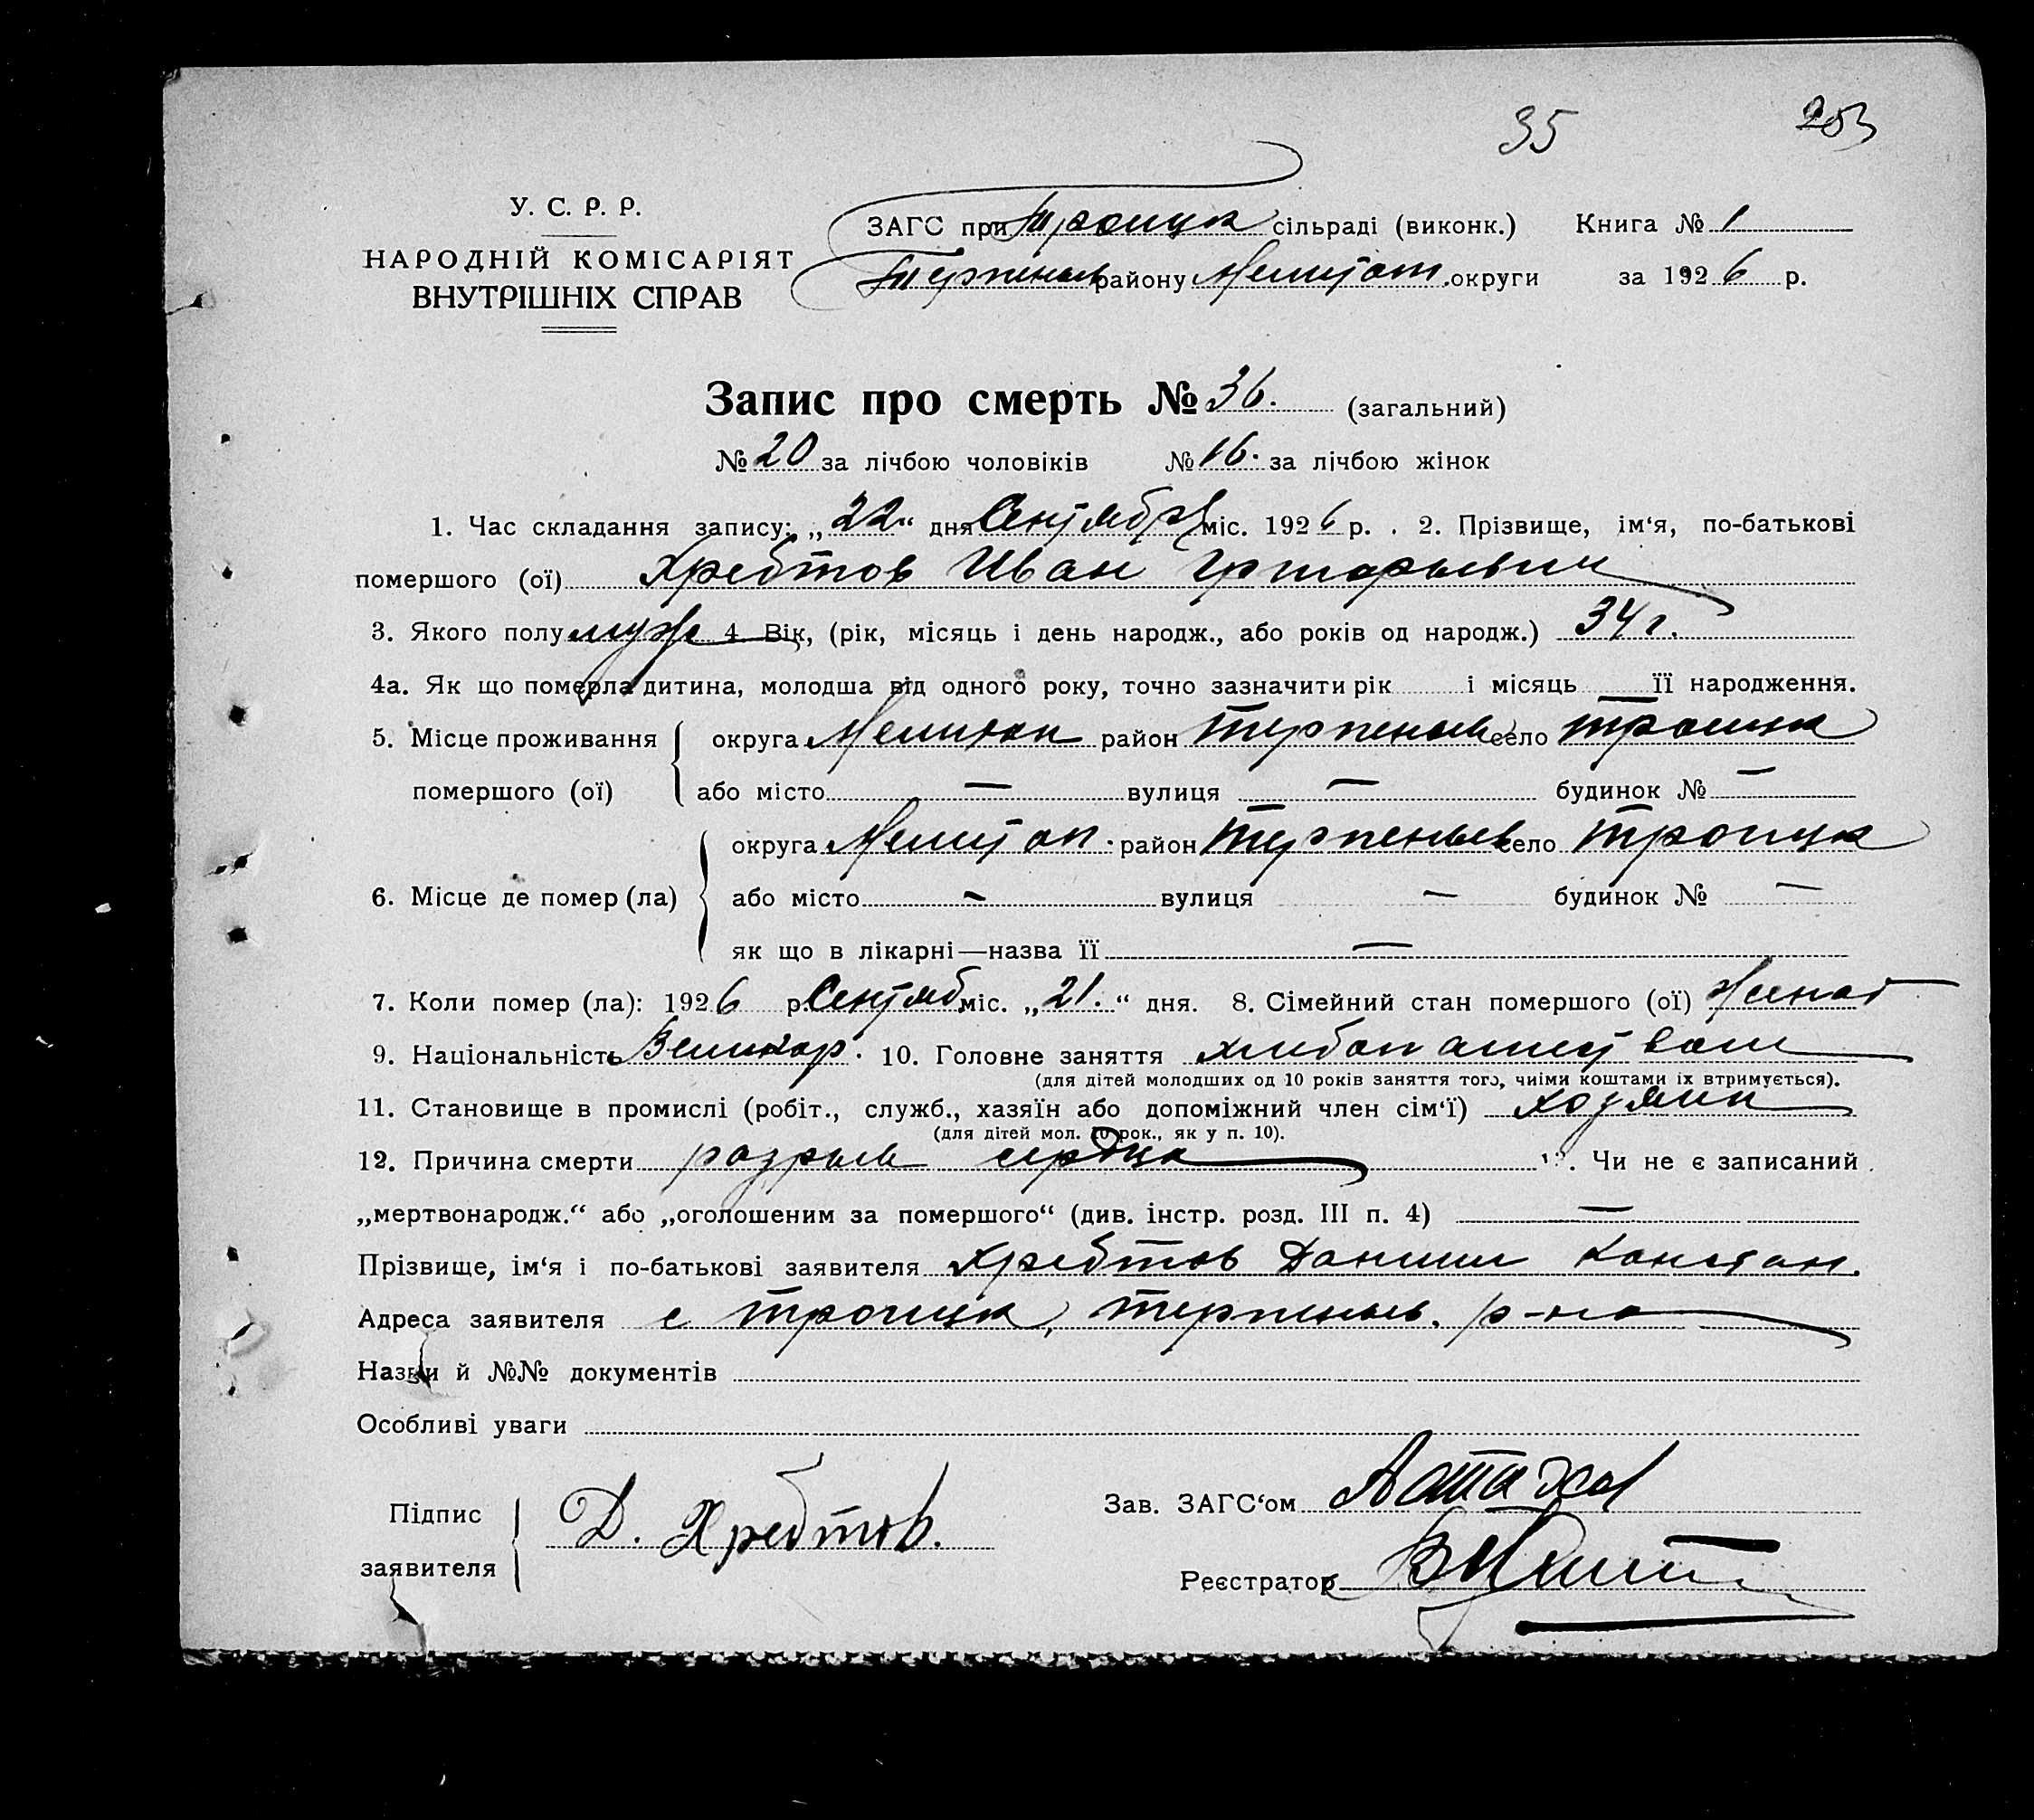 35 203
У. С. Р. Р.
НАРОДНІЙ КОМІСАРІЯТ
ВНУТРІШНІХ СПРАВ
ЗАГС при Троицк сільраді (виконк.) Книга № 1
Терпеньев району Мелитоп. округи за 1926 р.
Запис про смерть № 36. (загальний)
№ 20 за лічбою чоловіків № 16. за лічбою жінок
1. Час складання запису: „22“ дня Сентября міс. 1926 р. . 2. Прізвище, ім‘я, по-батькові
помершого (ої) Хребтов Иван Григорьевич
3. Якого полу муж 4. Вік, (рік, місяць і день народж., або років од народж.) 34 г.
4а. Як що померла дитина, молодша від одного року, точно зазначити рік і місяць — її народження.
5. Місце проживання округа Мелитоп район Терпеньев село Троицк
помершого (ої) або місто — вулиця — будинок № —
округа Мелитоп. район Терпеньев село Троицк
6. Місце де помер (ла) або місто — вулиця — будинок № —
як що в лікарні—назва її —
7. Коли помер (ла): 1926 р. Сентяб міс. „21.“ дня. 8. Сімейний стан помершого (ої) женат
9. Національність Великор. 10. Головне заняття хлебопашество
(для дітей молодших од 10 років заняття того, чиїми коштами їх втримується).
11. Становище в промислі (робіт., служб., хазяїн або допоміжний член сім‘ї) хозяин
(для дітей мол. 10 рок., як у п. 10).
12. Причина смерти разрыв сердца Чи не є записаний
„мертвонародж.“ або „оголошеним за помершого“ (див. інстр. розд. III п. 4) —
Прізвище, ім‘я і по-батькові заявителя Хребтов Даниил Констан.
Адреса заявителя с Троицк, Терпеньев. р-на
Назви й №№ документів
Особливі уваги
Підпис заявителя Д. Хребтов.
Зав. ЗАГС‘ом Астахов
Реєстратор